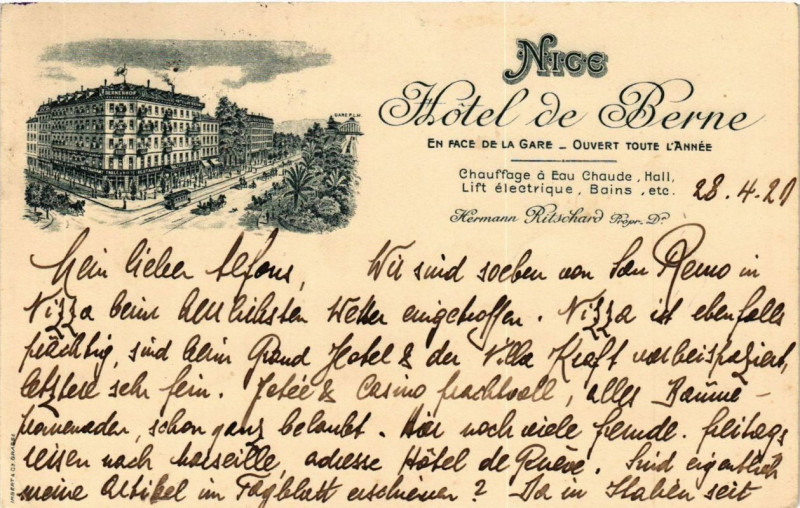 NICE
Hôtel de Berne
EN FACE DE LA GARE _ OUVERT TOUTE L'ANNÉE
Chauffage à Eau Chaude, Hall,
Lift électrique, Bains, etc.
28.4.21
Hermann Ritschard Propr. Dr.
BERNERHOF
GARE P.L.M.
Mein lieber Alfons, Wir sind soeben von San Remo in
Nizza beim allerliebsten Wetter eingetroffen. Nizza ist ebenfalls
prächtig, sind beim Grand Hotel & der Villa Kraft vorbeispaziert,
letztere sehr fein. Jetée & Casino prachtvoll, alles Bäume-
promenaden, schon ganz belaubt. Hier noch viele fremde. freitags
reisen nach Marseille, adresse Hôtel de Genève. Sind eigentlich
meine Artikel im Tagblatt erschienen? Da in Italien seit